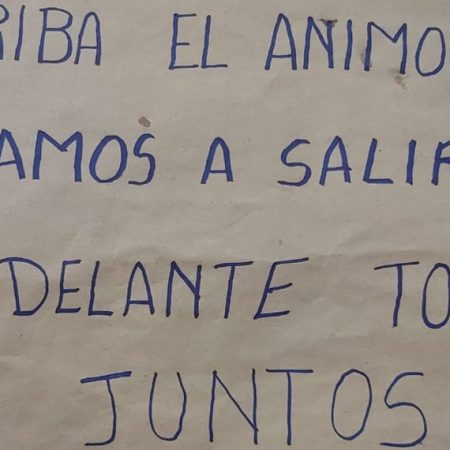 RIBA EL ANIMO
AMOS A SALIR
DELANTE TO
JUNTOS